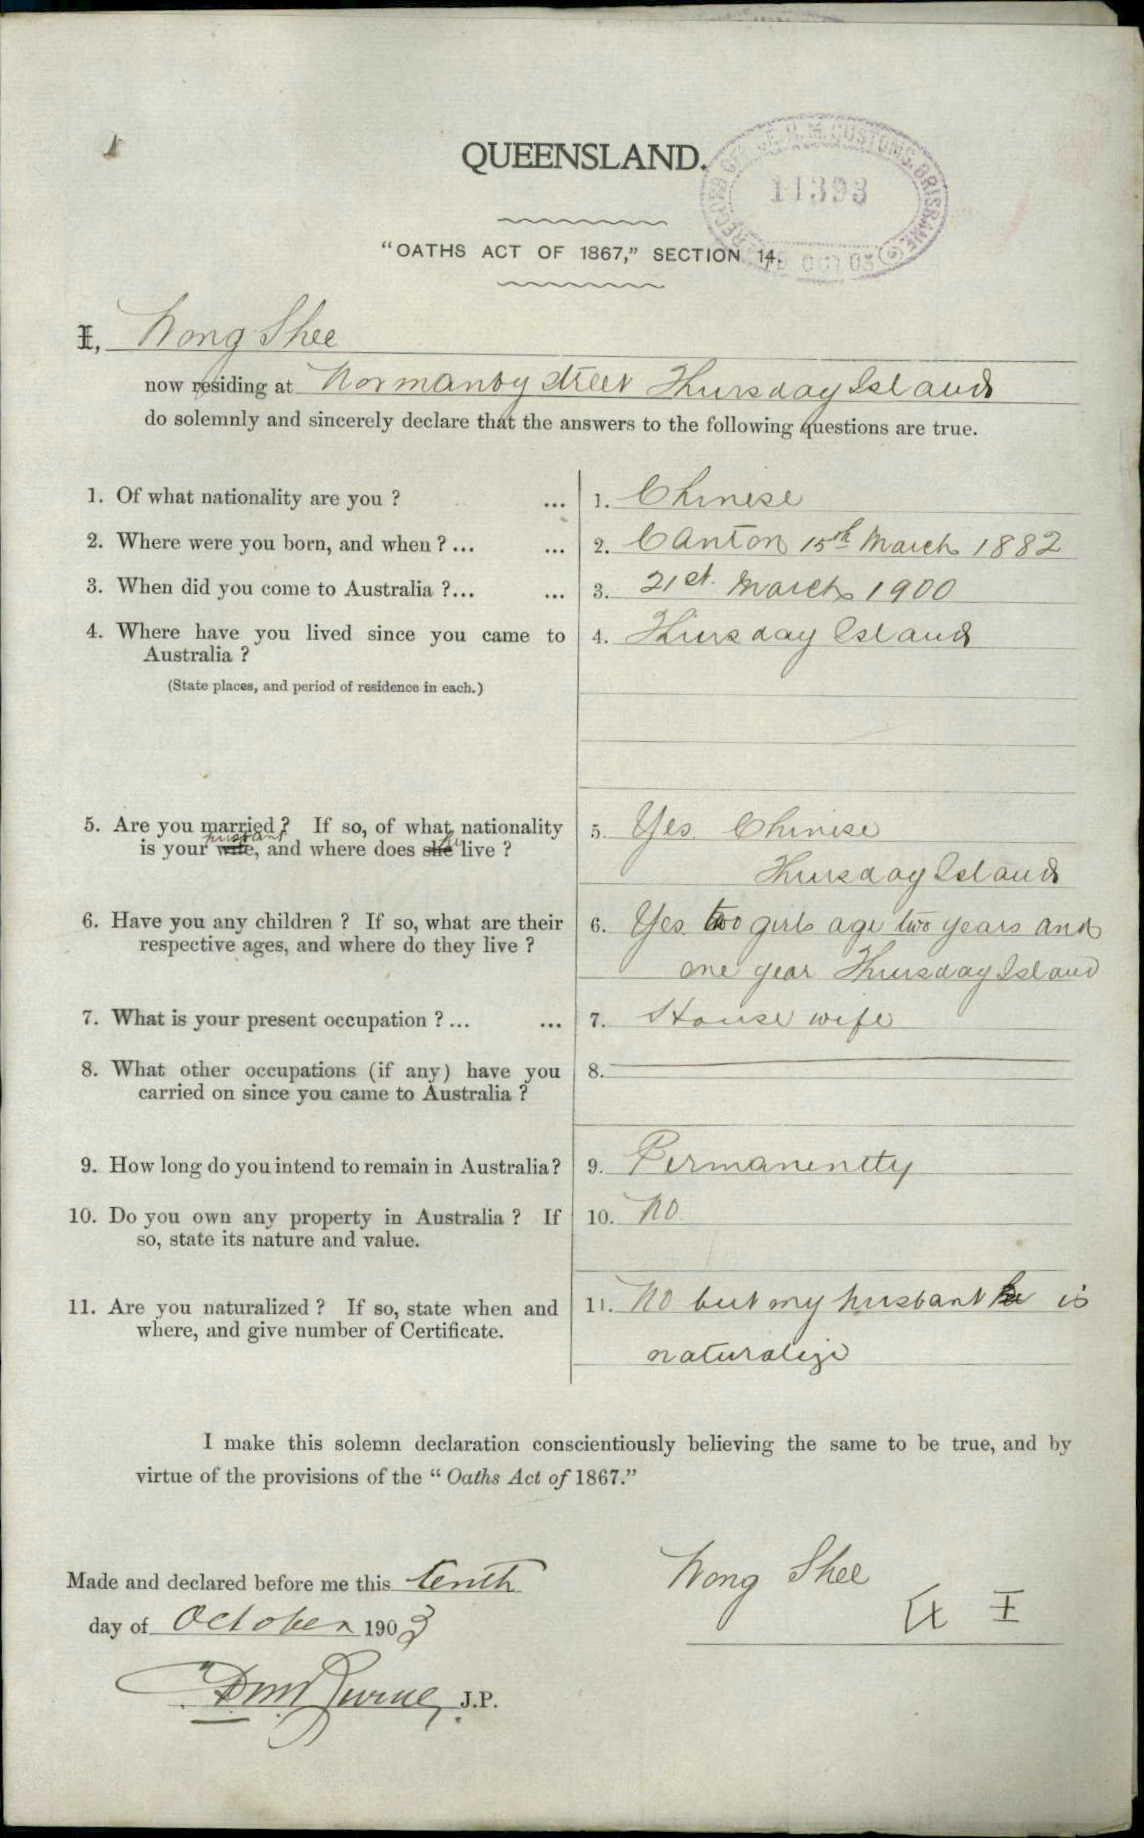 QUEENSLAND.
RECORD OFFICE, H.M. CUSTOMS, BRISBANE
11393
OCT 03
"OATHS ACT OF 1867," SECTION 14.
I, Wong Shee
now residing at Normanby street Thursday Island
do solemnly and sincerely declare that the answers to the following questions are true.
1. Of what nationality are you ? ... 1. Chinese
2. Where were you born, and when ? ... ... 2. Canton 15th March 1882
3. When did you come to Australia ?... ... 3. 21st. March 1900
4. Where have you lived since you came to 4. Thursday Island
Australia ?
(State places, and period of residence in each.)
5. Are you married ? If so, of what nationality 5. Yes Chinese
husbant he
is your wife, and where does she live ? Thursday Island
6. Have you any children ? If so, what are their 6. Yes. two girls age two years and
respective ages, and where do they live ? one year Thursday Island
7. What is your present occupation ? ... ... 7. House wife
8. What other occupations (if any) have you 8.
carried on since you came to Australia ?
9. How long do you intend to remain in Australia? 9. Permanentty
10. Do you own any property in Australia ? If 10. No
so, state its nature and value.
11. Are you naturalized ? If so, state when and 11. No but my husbant he is
where, and give number of Certificate. naturalize
I make this solemn declaration conscientiously believing the same to be true, and by
virtue of the provisions of the "Oaths Act of 1867."
Made and declared before me this tenth Wong Shee
day of October 1903
J.P.